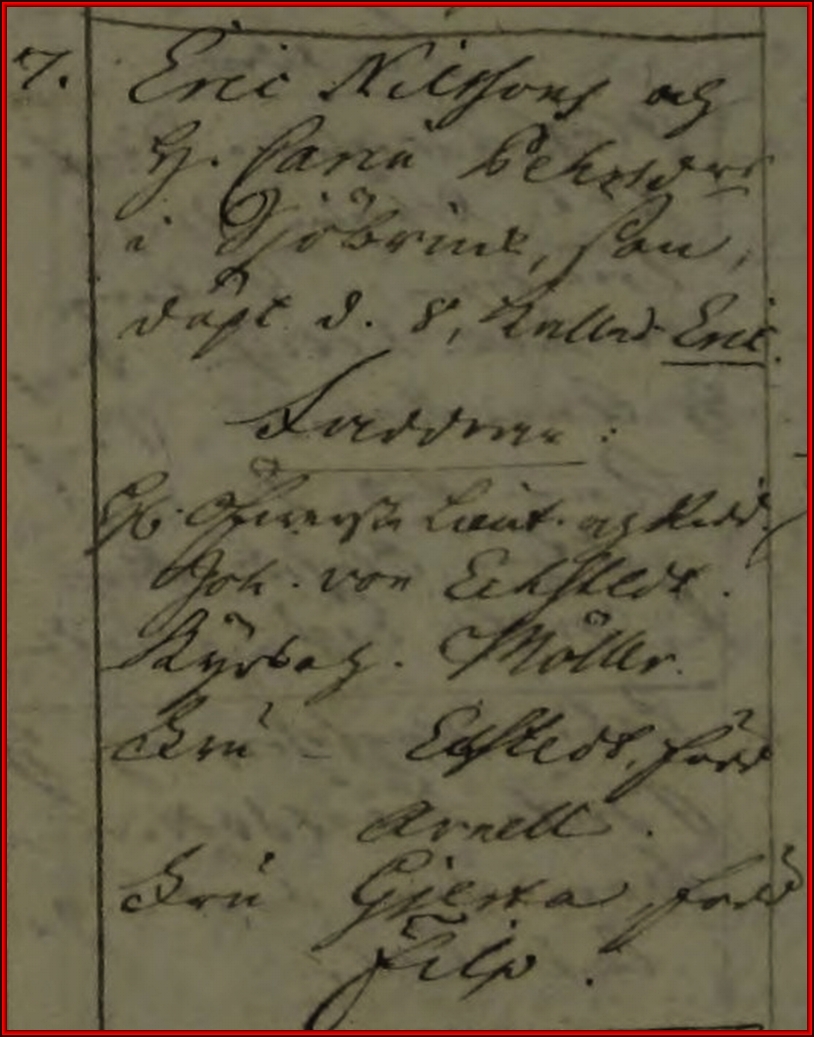 7. Eric Nilssons och
H. Carin Pehrsdrs
i Sjöbrink, son,
döpt d. 8, kallad Eric.
Faddrar:
H. Öfverste Lieut. och Ridd.
Joh. von Eckstedt.
Kyrkoh. Möller.
Fru Eckstedt, född
Arnell.
Fru Gjerta, född
Filp.